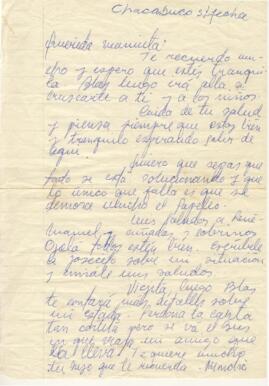 Chacabuco s/fecha
Querida mamita:
Te recuerdo mu-
cho y espero que estés tranqui-
la Blas luego irá allá a
a ti y a los niños
Cuida de tu salud
y piensa siempre que estoy bien
y tranquilo esperando salir de
aquí
Quiero que sepas que
todo se está solucionando y que
lo único que falla es que se
demora mucho el papeleo.
Mis saludos a René
Manuel y cuñadas y sobrinos
Ojalá todos estén bien. Escríbele
a sobre mi situación
y envíale mis saludos.
Viejita, luego Blas
te contará más detalles sobre
mi estado. Perdona la carta
tan cortita pero si va el
un que un amigo que
la lleva. Te quiere mucho
tu hijo que te recuerda.